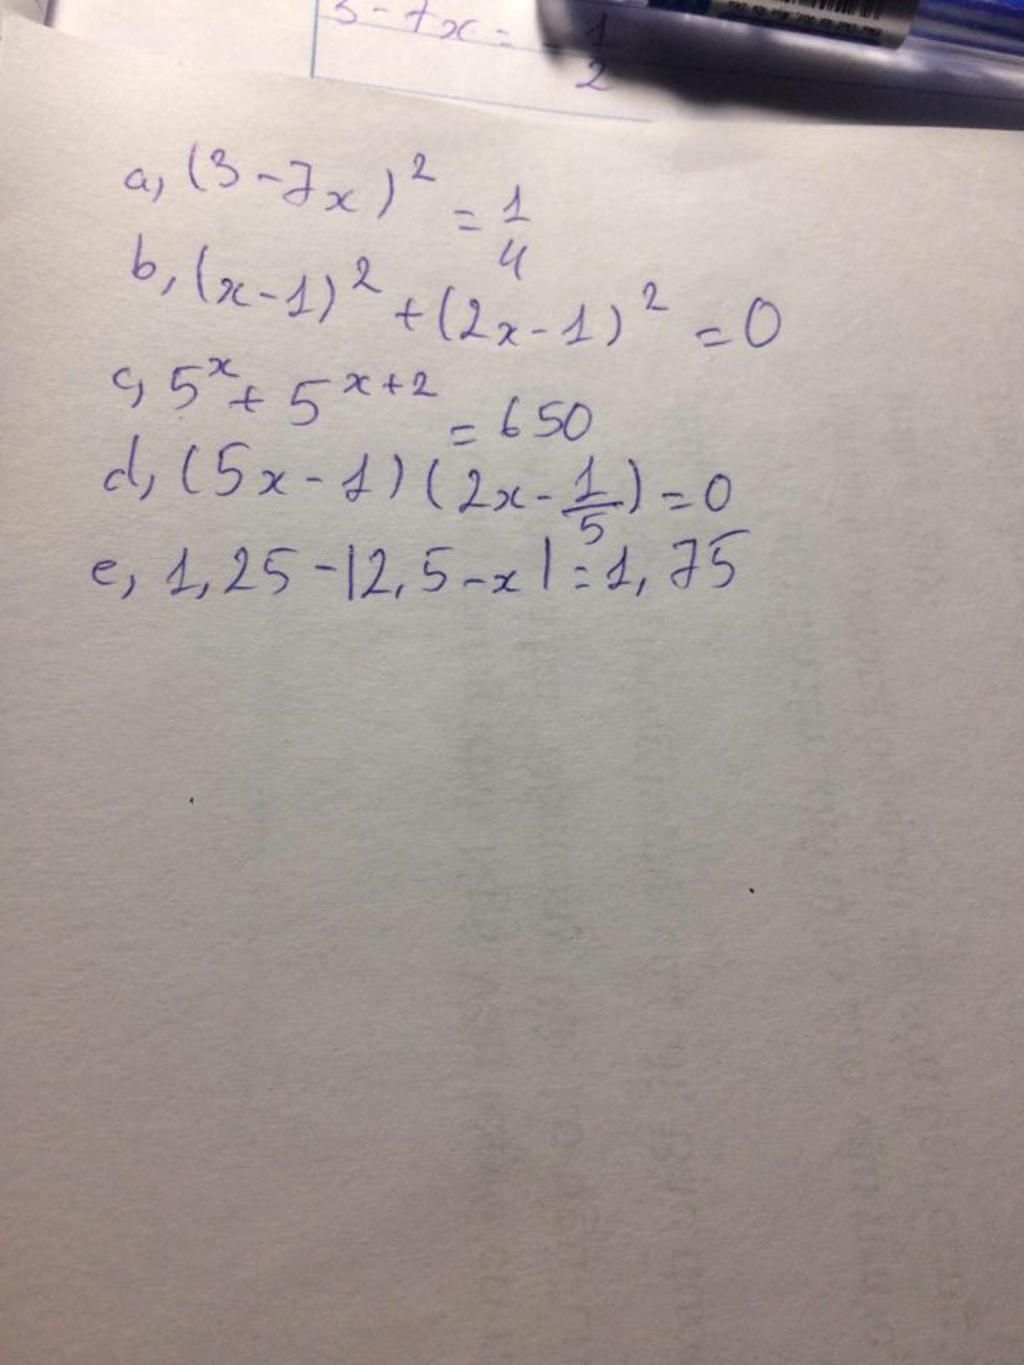 3 - 7x = - 1/2
a, (3 - 7x)² = 1/4
b, (x - 1)² + (2x - 1)² = 0
c, 5ˣ + 5ˣ⁺² = 650
d, (5x - 1)(2x - 1/5) = 0
e, 1,25 - |2,5 - x| = 1,75